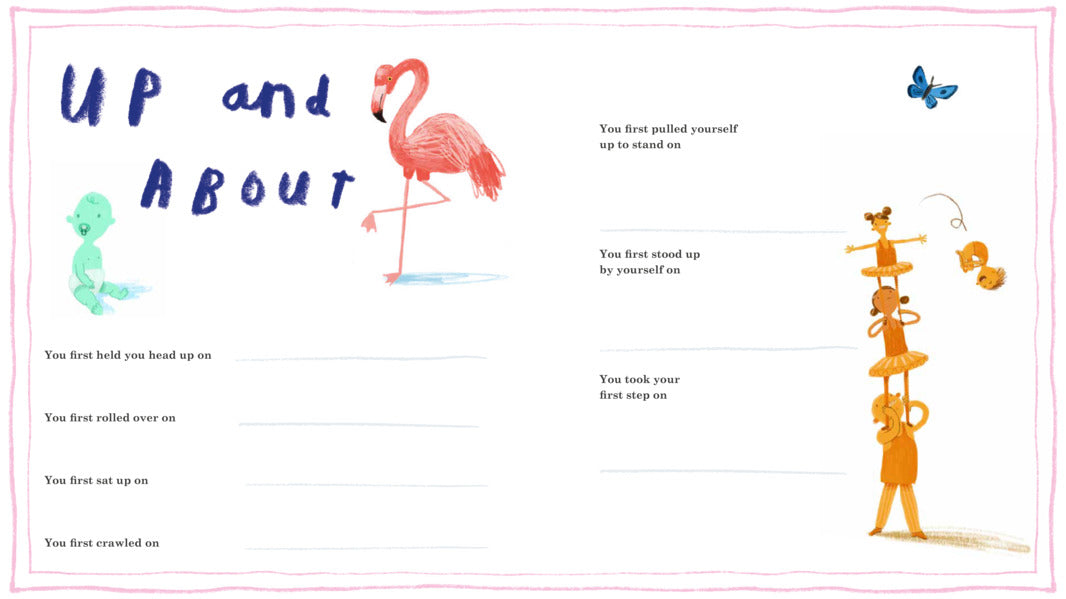 UP and
ABOUT
You first held you head up on
You first rolled over on
You first sat up on
You first crawled on
You first pulled yourself
up to stand on
You first stood up
by yourself on
You took your
first step on